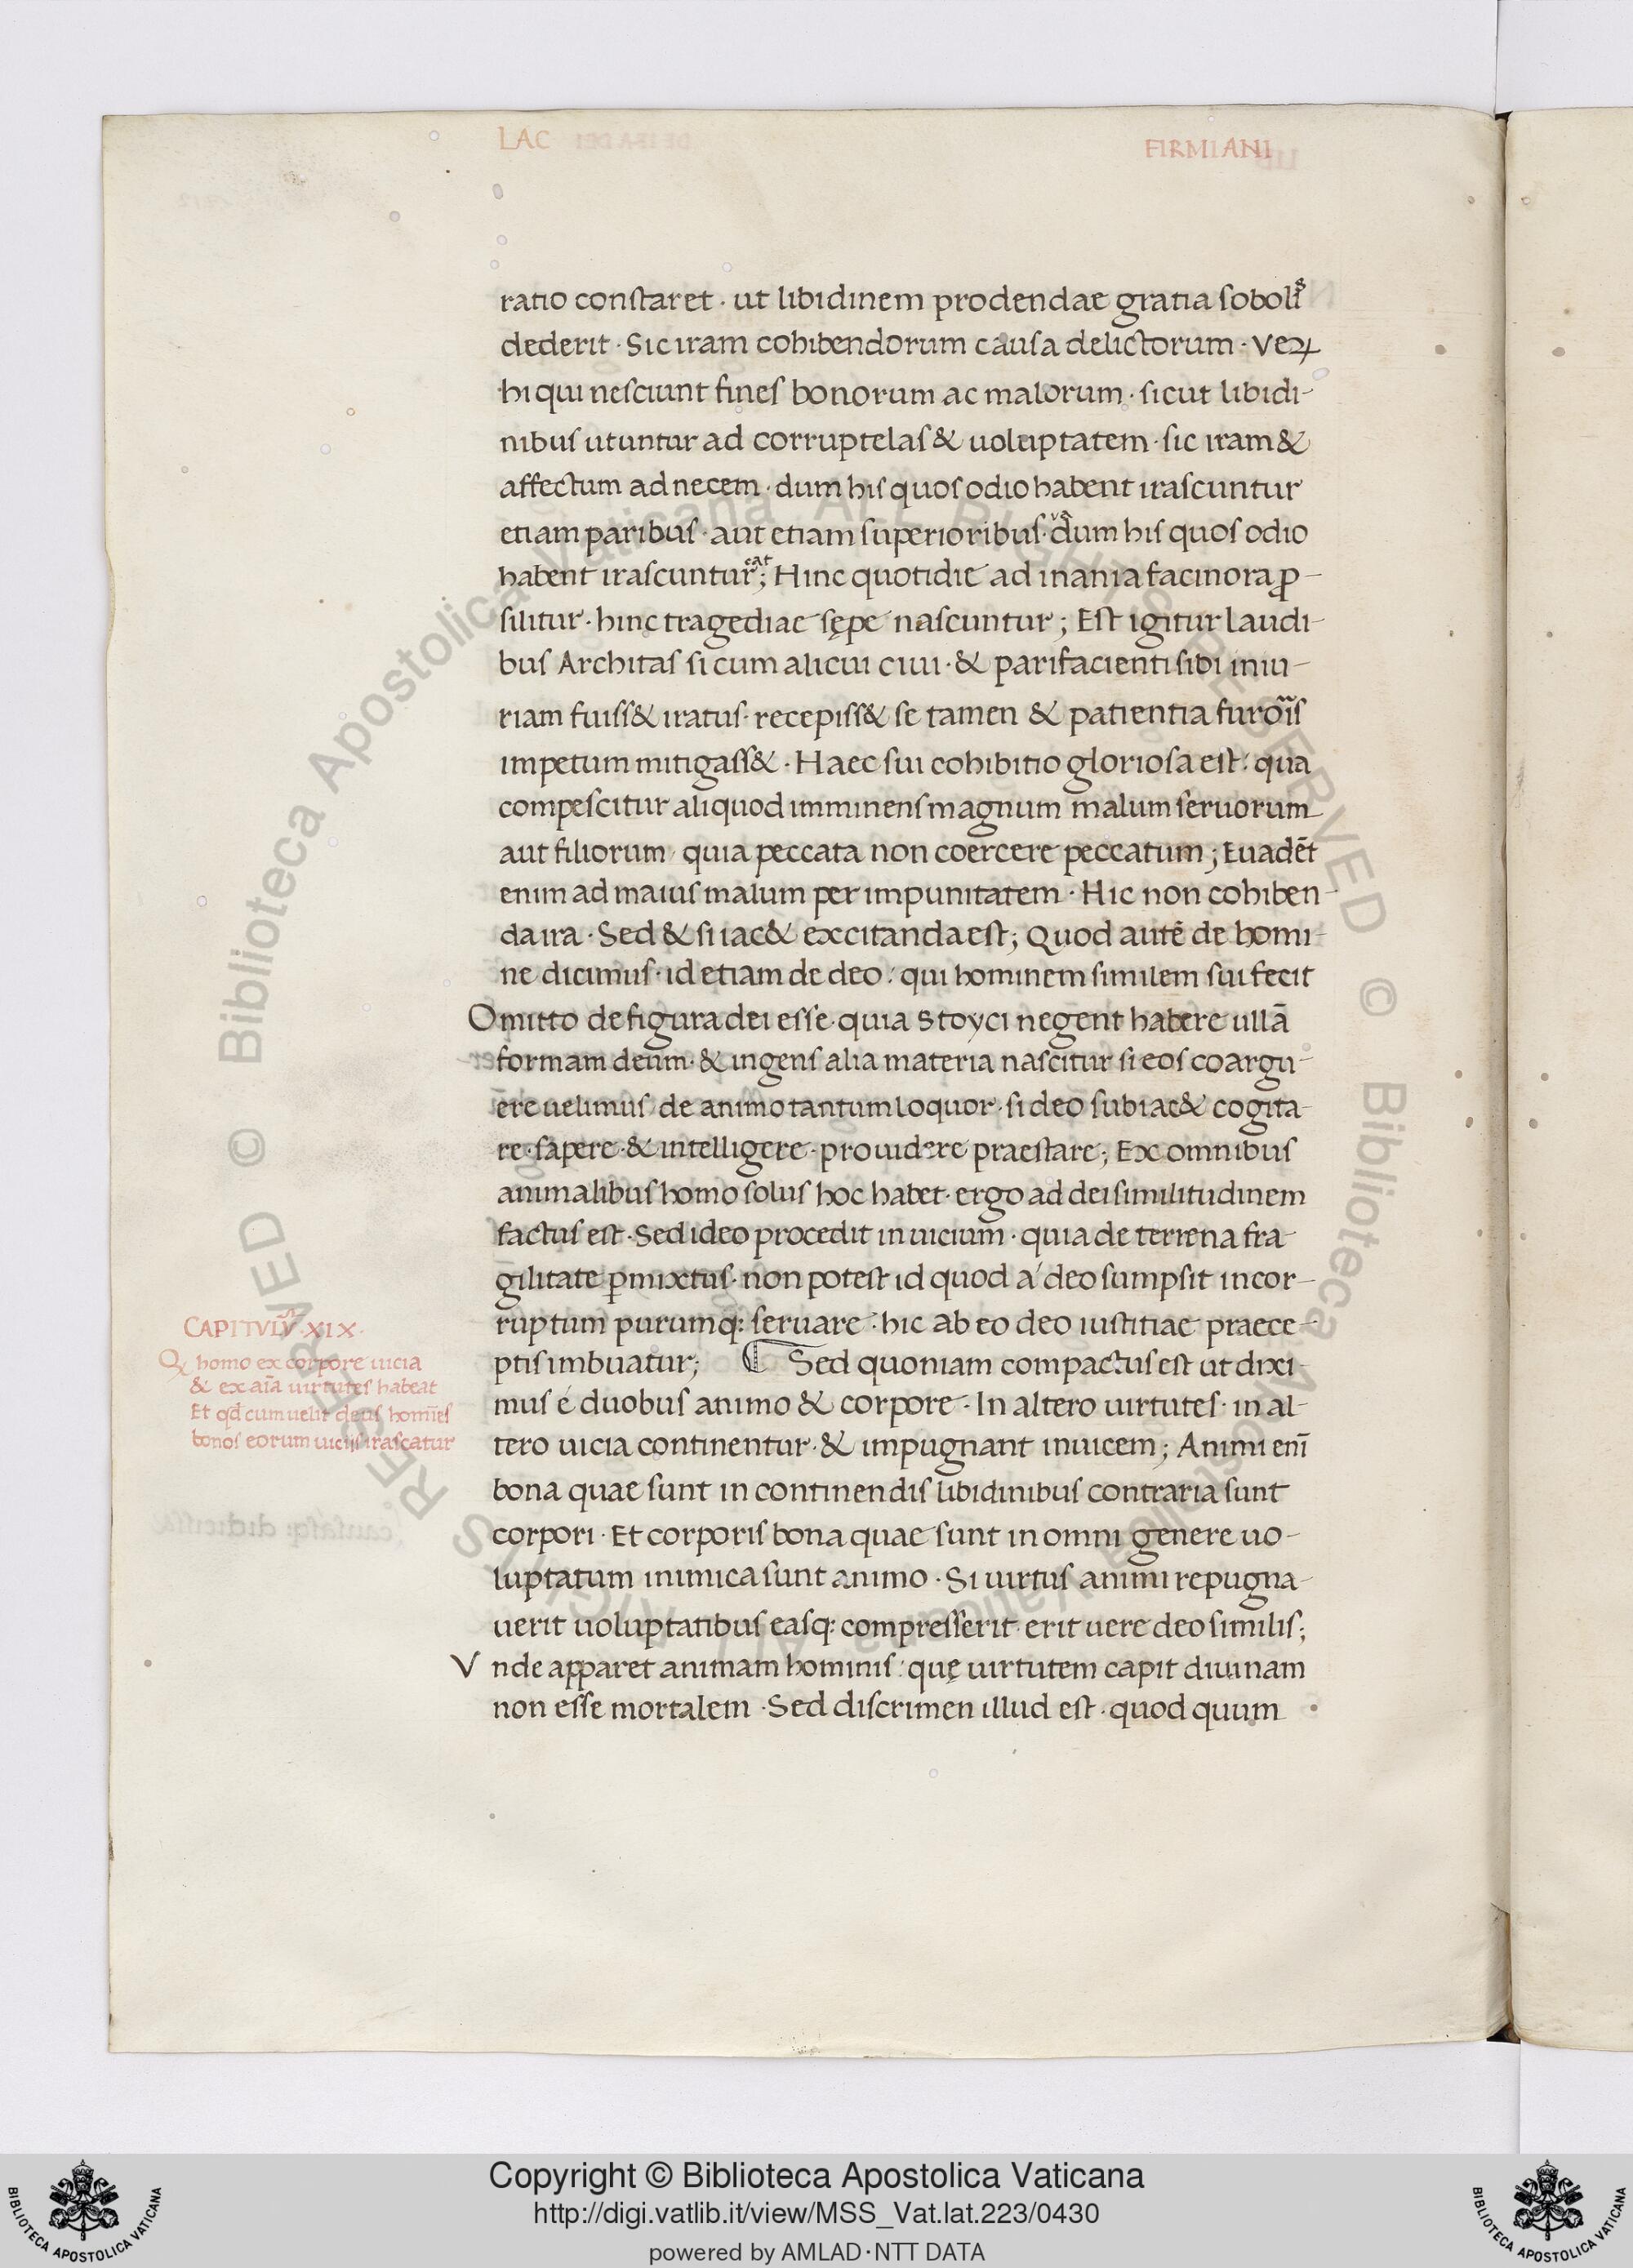 LAC FIRMIANI
ratio constaret · ut libidinem prodendae gratia sobolis
dederit · Sic iram cohibendorum causa delictorum · Veꝝ
hi qui nesciunt fines bonorum ac malorum · sicut libidi-
nibus utuntur ad corruptelas & uoluptatem · sic iram &
affectum ad necem · dum his quos odio habent irascuntur
etiam paribus · aut etiam superioribus · dum his quos odio
habent irascuntur; Hinc quotidie ad inania facinora ꝓ-
silitur · hinc tragediae sępe nascuntur; Est igitur laudi-
bus Architas si cum alicui ciui · & pari facienti sibi iniu-
riam fuiss& iratus · recepiss& se tamen & patientia furoı̃s
impetum mitigass& · Haec sui cohibitio gloriosa est: qua
compescitur aliquod imminens magnum malum seruorum
aut filiorum · quia peccata non coercere peccatum; Euadēt
enim ad maius malum per impunitatem · Hic non cohiben-
da ira · Sed & si iac& excitanda est; Quod autē de homi-
ne dicimus · id etiam de deo: qui hominem similem sui fecit
Omitto de figura dei esse · quia Stoyci negent habere ullā
formam deum · & ingens alia materia nascitur si eos coargu-
ere uelimus · de animo tantum loquor · si deo subiac& cogita-
re · sapere · & intelligere · prouidere praestare; Ex omnibus
animalibus homo solus hoc habet · ergo ad dei similitudinem
factus est · Sed ideo procedit in uicium · quia de terrena fra-
gilitate ꝑmixtus · non potest id quod a deo sumpsit incor-
ruptum purumq: seruare · hic ab eo deo iustitiae praece-
ptis imbuatur; Sed quoniam compactus est ut dixi-
mus é duobus animo & corpore · In altero uirtutes · in al-
tero uicia continentur · & impugnant inuicem; Animi enī
bona quae sunt in continendis libidinibus contraria sunt
corpori · Et corporis bona quae sunt in omni genere uo-
luptatum inimica sunt animo · Si uirtus animi repugna-
uerit uoluptatibus easq: compresserit · erit uere deo similis;
Vnde apparet animam hominis: quę uirtutem capit diuinam
non esse mortalem · Sed discrimen illud est · quod quum
CAPITVLV̄ · XIX ·
homo ex corpore uicia
& ex aīa uirtutes habeat
Et qđ cum uelit deus homīes
bonos eorum uicijs irascatur
© Biblioteca Apostolica Vaticana ALL RIGHTS RESERVED © Biblioteca Apostolica Vaticana ALL RIGHTS RESERVED
Copyright © Biblioteca Apostolica Vaticana
http://digi.vatlib.it/view/MSS_Vat.lat.223/0430
powered by AMLAD·NTT DATA
BIBLIOTECA APOSTOLICA VATICANA
BIBLIOTECA APOSTOLICA VATICANA